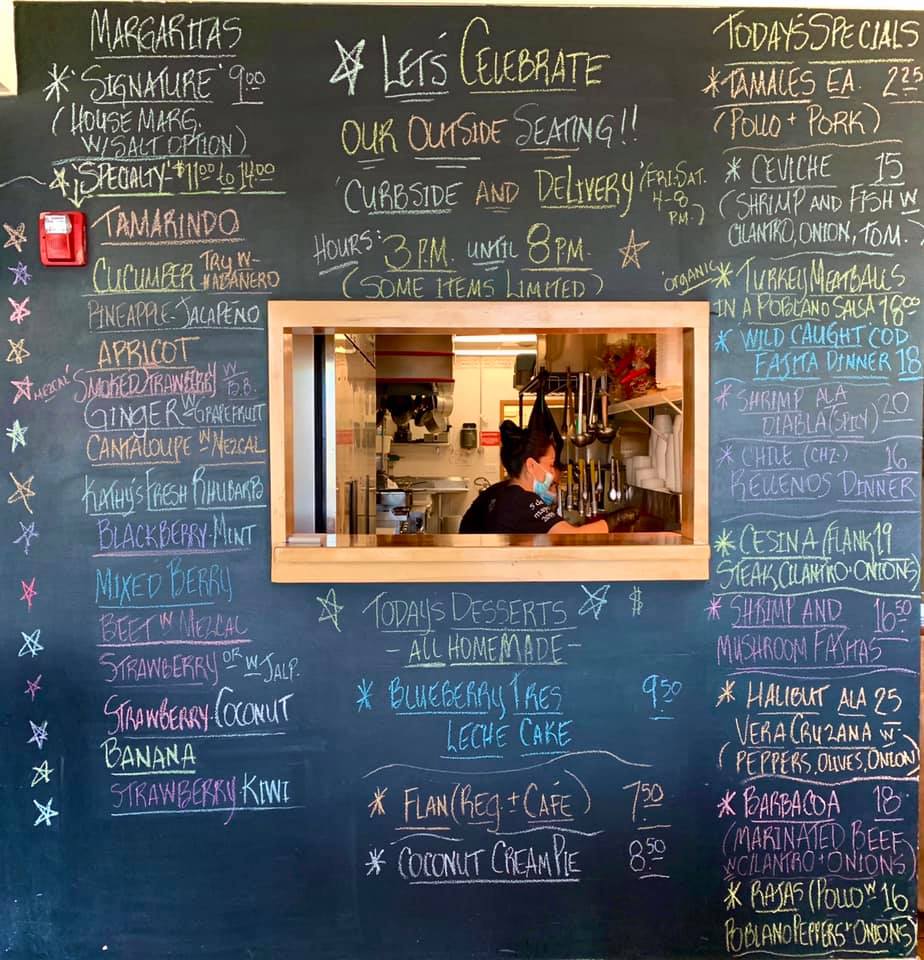 MARGARITAS
* 'SIGNATURE' 9.00
(HOUSE MARG.
W/SALT OPTION)
'SPECIALTY' $11.00 to 14.00
TAMARINDO
CUCUMBER TRY W- HABANERO
PINEAPPLE-JALAPEÑO
APRICOT
MEZCAL SMOKED STRAWBERRY W
GINGER W- GRAPEFRUIT
CANTALOUPE W MEZCAL
KATHY'S FRESH RHUBARB
BLACKBERRY-MINT
MIXED BERRY
BEET W MEZCAL
STRAWBERRY OR W-JALP.
STRAWBERRY-COCONUT
BANANA
STRAWBERRY-KIWI
LET'S CELEBRATE
OUR OUTSIDE SEATING!!
'CURBSIDE AND DELIVERY' (FRI-SAT.
4-8
PM.)
HOURS: 3PM. UNTIL 8PM.
(SOME ITEMS LIMITED)
TODAY'S DESSERTS $
-ALL HOMEMADE-
* BLUEBERRY TRES 9.50
LECHE CAKE
* FLAN (REG. + CAFÉ) 7.50
* COCONUT CREAM PIE 8.50
TODAY'S SPECIALS
* TAMALES EA. 2.25
(POLLO + PORK)
* CEVICHE 15
(SHRIMP AND FISH W
CILANTRO, ONION, TOM.
ORGANIC * TURKEY MEATBALLS
IN A POBLANO SALSA 18.00
* WILD CAUGHT COD
FAJITA DINNER 18
* SHRIMP ALA 20
DIABLA (SPICY)
* CHILE (CHZ.) 16
RELLENOS DINNER
* CESINA (FLANK 19
STEAK, CILANTRO + ONIONS
* SHRIMP AND 16.50
MUSHROOM FAJITAS
* HALIBUT ALA 25
VERA CRUZANA W-
(PEPPERS, OLIVES, ONION)
* BARBACOA 18
(MARINATED BEEF
W CILANTRO + ONIONS)
* RAJAS (POLLO W 16.
POBLANO PEPPERS + ONIONS)